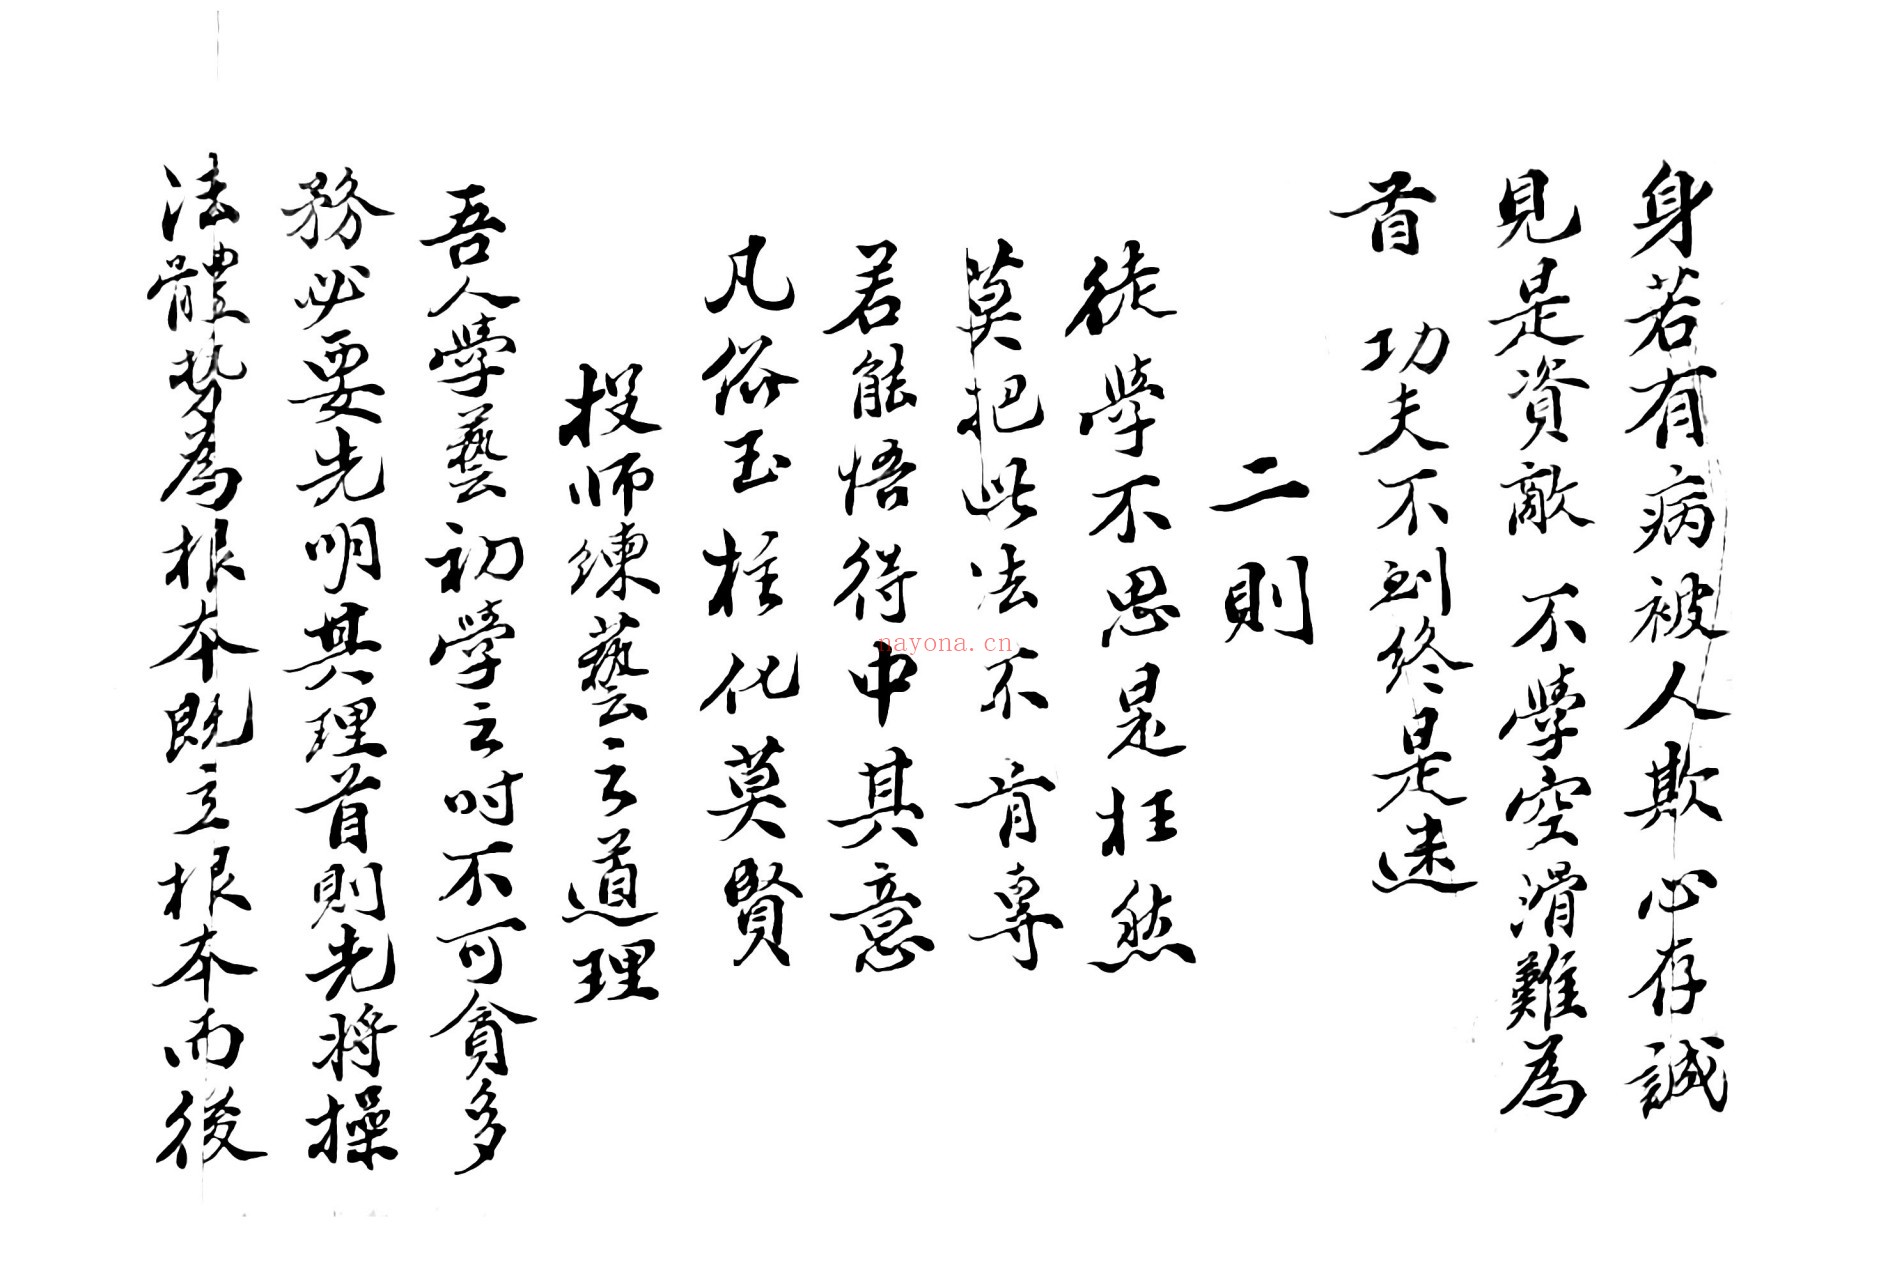 身若有病被人欺心存誠
見是資敵 不學空滑難為
首 功夫不到終是迷
二則
徒學不思是枉然
莫把此法不肯專
若能悟得中其意
凡俗玉柱化莫賢
投师練藝之道理
吾人學藝初學之时不可貪多
務必要先明其理首則先将操
法體势為根本既立根本而後
nayona.cn